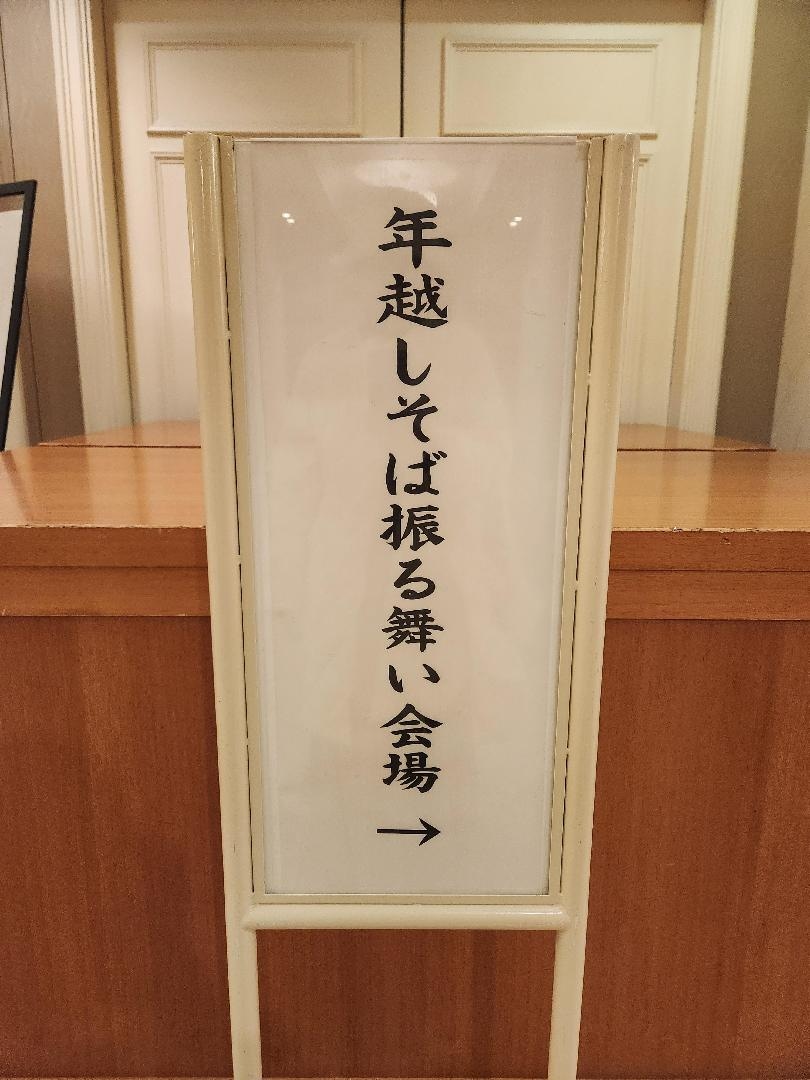 年越しそば振る舞い会場
→